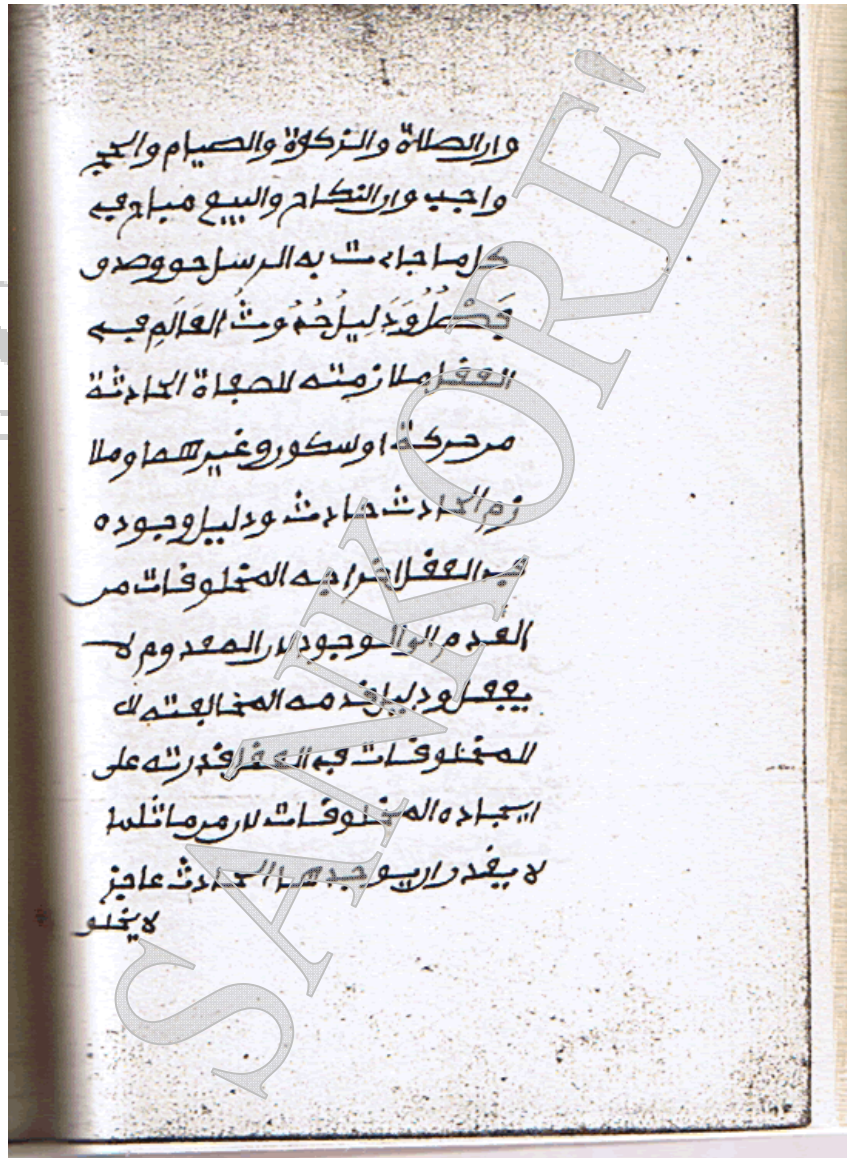 وان الصلاة والزكوة والصيام والحج
واجب وان النكاح والبيع مباح فى
كل ما جاءت به الرسل حق وصدق
فَصْلٌ وَدَلِيلُ حُدُوثُ العَالَمِ فى
العقل ملازمته للصفاة الحادثة
من حركة او سكون وغيرهما وملا
زم الحادث حادث ودليل وجوده
فى العقل اخراجه المخلوقات من
العدم الى الوجود لان المعدوم لا
يفعل ودليل قدمه المخالفته لل
للمخلوقات فى العقل قدرته على
ايجاده المخلوقات لان من ماثلها
لا يقدر ان يوجدها الحادث عاجز
لا يخلو
SANKORE'